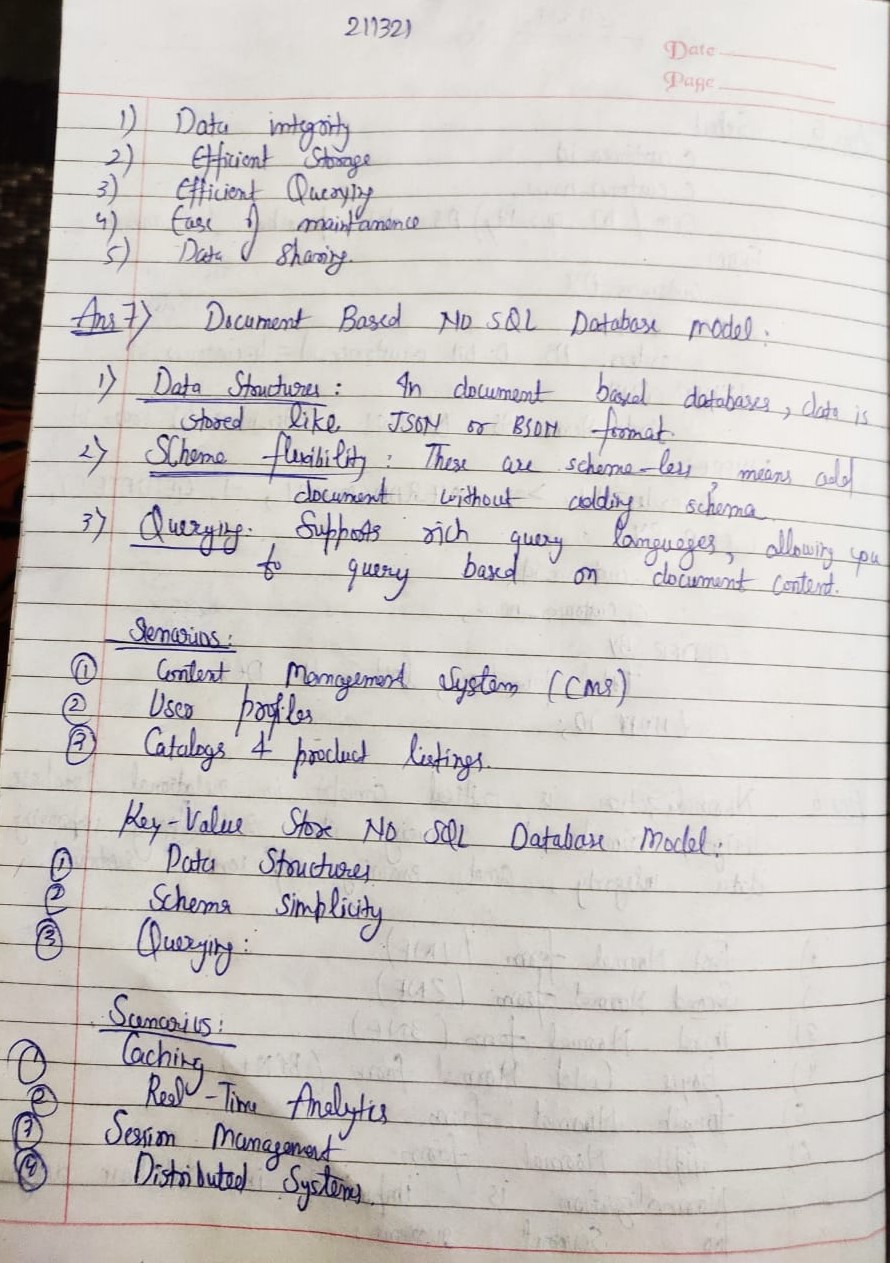 211321
Date
Page
1) Data integrity
2) Efficient Storage
3) Efficient Querying
4) Ease of maintanence
5) Data Sharing.
Ans 7) Document Based NO SQL Database model:
1) Data Structures: In document based databases, data is
stored like JSON or BSON format.
2) SCheme flexibility: These are scheme-less, means add
document without adding schema
3) Querying: Supports rich query languages, allowing you
to query based on document content.
Scenarios:
① Content Management System (CMS)
② User profiles
③ Catalogs & product listings.
Key-Value Store NO SQL Database Model:
① Data Structures
② Schema Simplicity
③ Querying:
Scenarios:
① Caching
② Real-Time Analytics
③ Session Management
④ Distributed Systems.